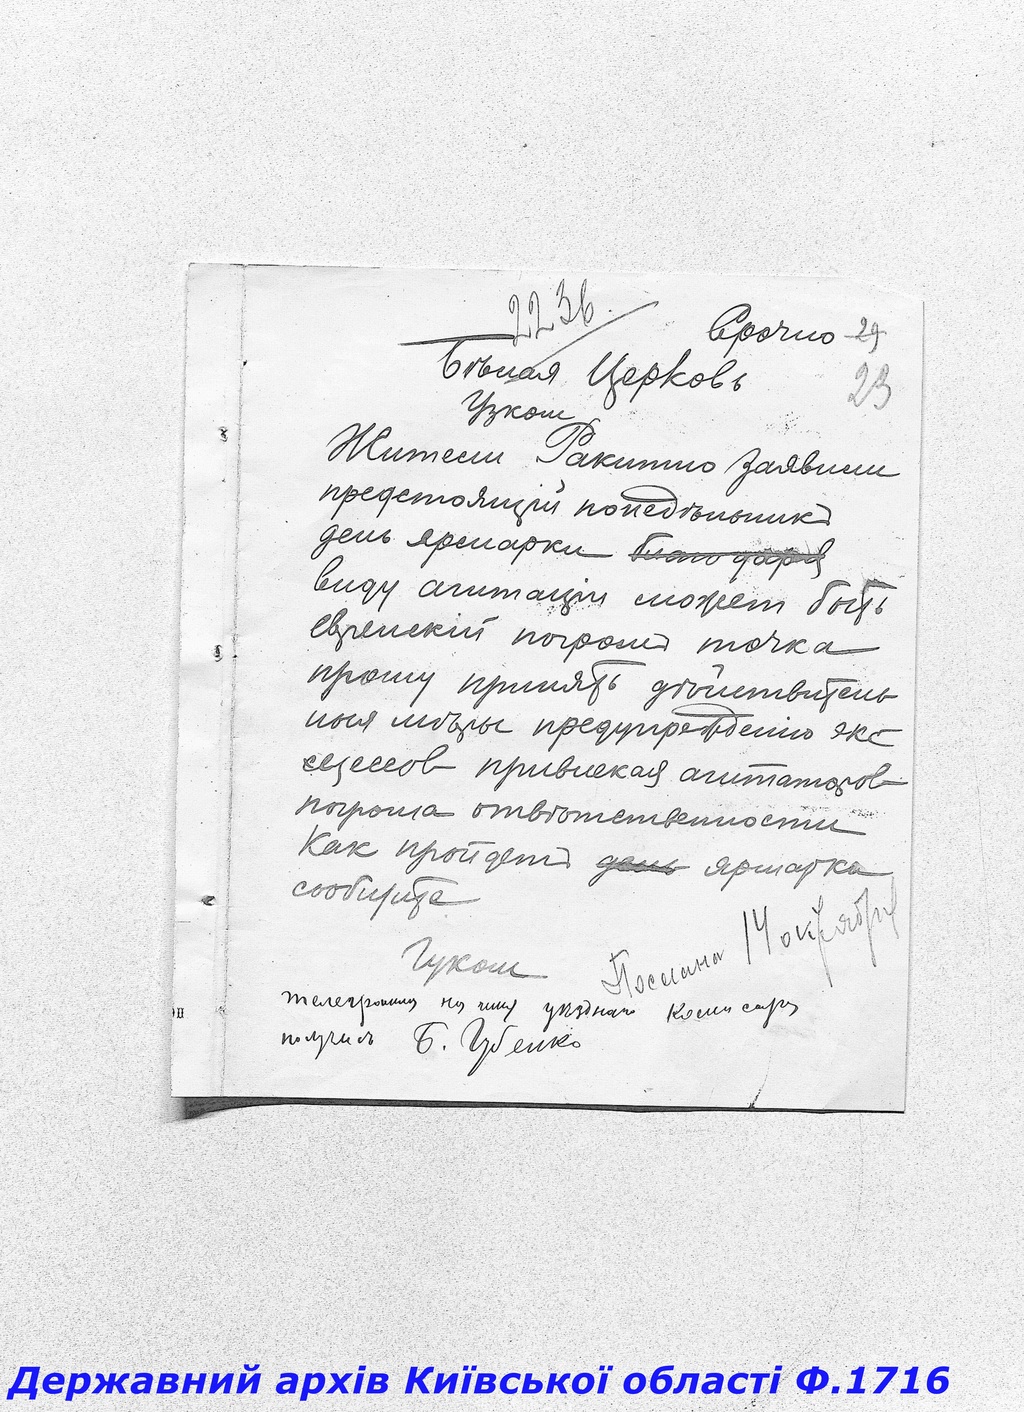 2236
Срочно 29
Бѣлая Церковь
23
Узком
Жители Ракитно заявили
предстоящій понедѣльникъ
день ярмарки благодаря
виду агитаціи может быть
еврейскій погромъ точка
прошу принять дѣйствитель
ныя мѣры предупрежденію экс
цессов привлекая агитаторов
погрома отвѣтственности
Как пройдетъ день ярмарка
сообщите
Гуком
Послана 14 октября
телеграмму на имя уѣзднаго комисара
получилъ Б. Губенко
Державний архів Київської області Ф.1716